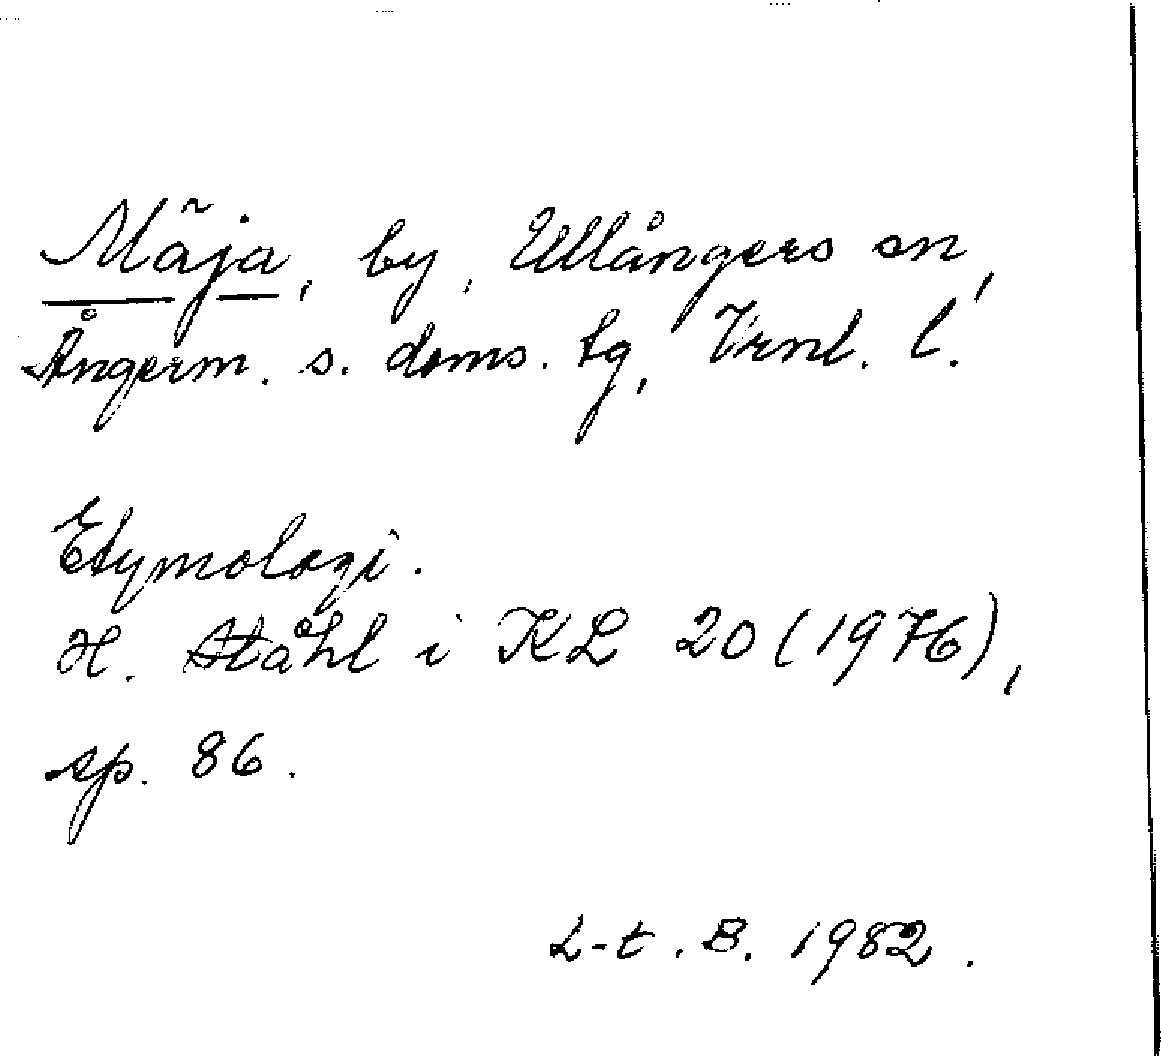 Mäja, by, Ullångers sn,
Ångerm. s. doms. tg, Vrnl. l.
Etymologi.
H. Ståhl i KL 20 (1976),
sp. 86.
L-t. B. 1982.